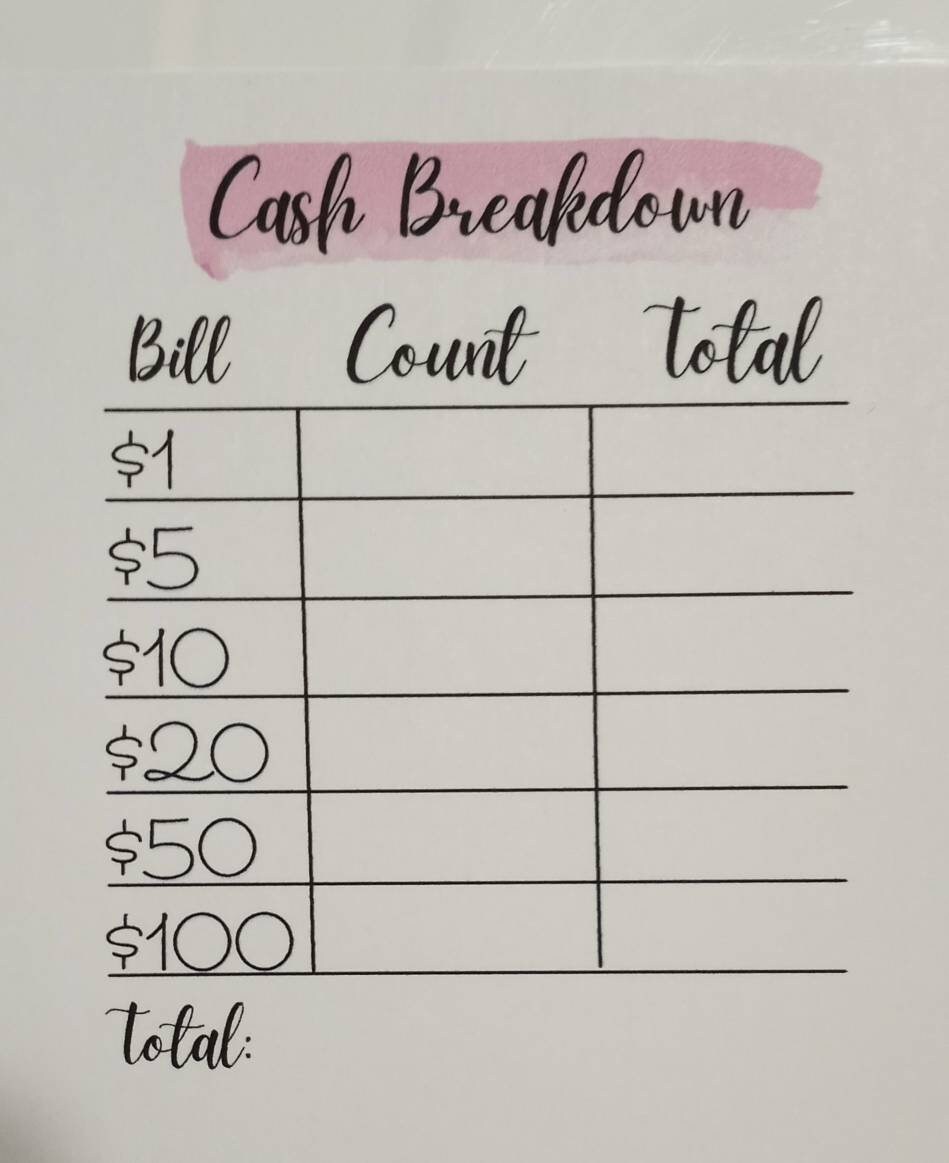 Cash Breakdown
Bill Count Total
$1
$5
$10
$20
$50
$100
Total: